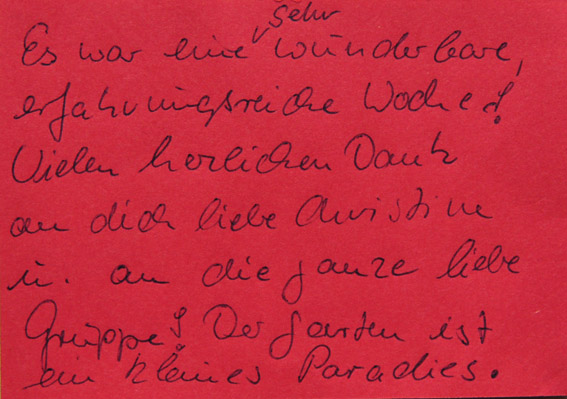 sehr
Es war eine wunderbare,
erfahrungsreiche Woche!
Vielen herzlichen Dank
an dich liebe Christine
u. an die ganze liebe
Gruppe! Der Garten ist
ein kleines Paradies.